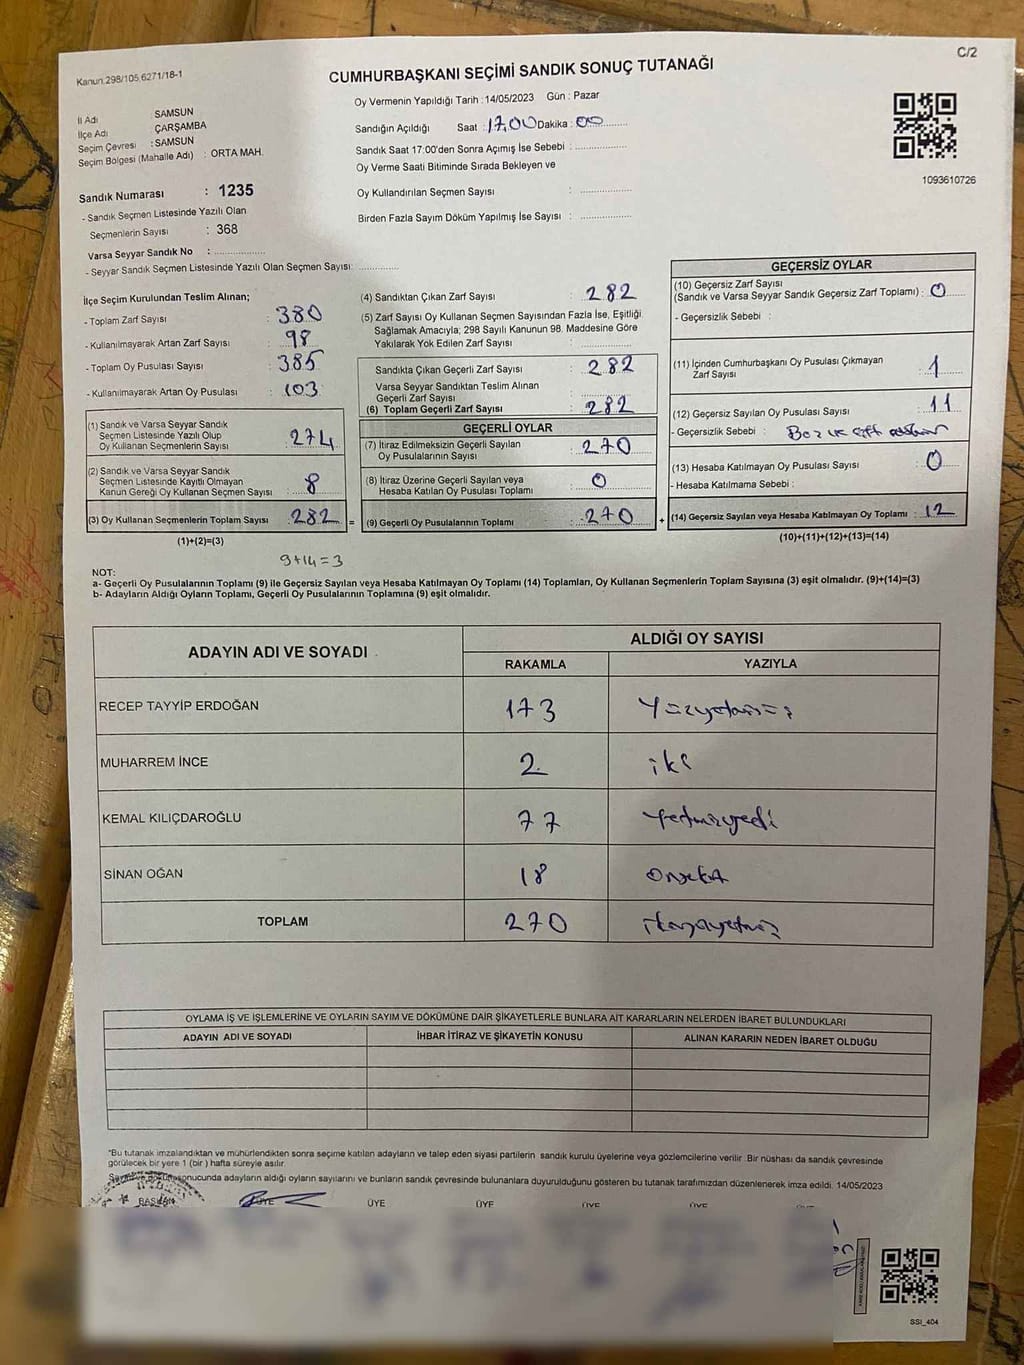 C/2
Kanun 298/105,6271/18-1
CUMHURBAŞKANI SEÇİMİ SANDIK SONUÇ TUTANAĞI
İl Adı SAMSUN
İlçe Adı ÇARŞAMBA
Seçim Çevresi : SAMSUN
Seçim Bölgesi (Mahalle Adı) : ORTA MAH.
Oy Vermenin Yapıldığı Tarih : 14/05/2023 Gün : Pazar
Sandığın Açıldığı Saat : 17,00 Dakika : 00
Sandık Saat 17:00'den Sonra Açımış İse Sebebi :
Oy Verme Saati Bitiminde Sırada Bekleyen ve
Oy Kullandırılan Seçmen Sayısı :
Birden Fazla Sayım Döküm Yapılmış İse Sayısı :
1093610726
Sandık Numarası : 1235
- Sandık Seçmen Listesinde Yazılı Olan
Seçmenlerin Sayısı : 368
Varsa Seyyar Sandık No :
- Seyyar Sandık Seçmen Listesinde Yazılı Olan Seçmen Sayısı:
İlçe Seçim Kurulundan Teslim Alınan;
- Toplam Zarf Sayısı : 380
- Kullanılmayarak Artan Zarf Sayısı : 98
- Toplam Oy Pusulası Sayısı : 385
- Kullanılmayarak Artan Oy Pusulası : 103
(1) Sandık ve Varsa Seyyar Sandık
Seçmen Listesinde Yazılı Olup
Oy Kullanan Seçmenlerin Sayısı : 274
(2) Sandık ve Varsa Seyyar Sandık
Seçmen Listesinde Kayıtlı Olmayan
Kanun Gereği Oy Kullanan Seçmen Sayısı : 8
(3) Oy Kullanan Seçmenlerin Toplam Sayısı : 282 =
(1)+(2)=(3)
9+14=3
(4) Sandıktan Çıkan Zarf Sayısı : 282
(5) Zarf Sayısı Oy Kullanan Seçmen Sayısından Fazla İse, Eşitliği
Sağlamak Amacıyla; 298 Sayılı Kanunun 98. Maddesine Göre
Yakılarak Yok Edilen Zarf Sayısı :
Sandıkta Çıkan Geçerli Zarf Sayısı : 282
Varsa Seyyar Sandıktan Teslim Alınan
Geçerli Zarf Sayısı :
(6) Toplam Geçerli Zarf Sayısı : 282
GEÇERLİ OYLAR
(7) İtiraz Edilmeksizin Geçerli Sayılan
Oy Pusulalarının Sayısı : 270
(8) İtiraz Üzerine Geçerli Sayılan veya
Hesaba Katılan Oy Pusulası Toplamı : 0
(9) Geçerli Oy Pusulalarının Toplamı : 270 +
GEÇERSİZ OYLAR
(10) Geçersiz Zarf Sayısı
(Sandık ve Varsa Seyyar Sandık Geçersiz Zarf Toplamı) : 0
- Geçersizlik Sebebi :
(11) İçinden Cumhurbaşkanı Oy Pusulası Çıkmayan
Zarf Sayısı : 1
(12) Geçersiz Sayılan Oy Pusulası Sayısı : 11
- Geçersizlik Sebebi :
(13) Hesaba Katılmayan Oy Pusulası Sayısı : 0
- Hesaba Katılmama Sebebi :
(14) Geçersiz Sayılan veya Hesaba Katılmayan Oy Toplamı : 12
(10)+(11)+(12)+(13)=(14)
NOT:
a- Geçerli Oy Pusulalarının Toplamı (9) ile Geçersiz Sayılan veya Hesaba Katılmayan Oy Toplamı (14) Toplamları, Oy Kullanan Seçmenlerin Toplam Sayısına (3) eşit olmalıdır. (9)+(14)=(3)
b- Adayların Aldığı Oyların Toplamı, Geçerli Oy Pusulalarının Toplamına (9) eşit olmalıdır.
ADAYIN ADI VE SOYADI ALDIĞI OY SAYISI
RAKAMLA YAZIYLA
RECEP TAYYİP ERDOĞAN 173
MUHARREM İNCE 2 iki
KEMAL KILIÇDAROĞLU 77 Yetmişyedi
SİNAN OĞAN 18 Onsekiz
TOPLAM 270 ikiyüzyetmiş
OYLAMA İŞ VE İŞLEMLERİNE VE OYLARIN SAYIM VE DÖKÜMÜNE DAİR ŞİKAYETLERLE BUNLARA AİT KARARLARIN NELERDEN İBARET BULUNDUKLARI
ADAYIN ADI VE SOYADI İHBAR İTİRAZ VE ŞİKAYETİN KONUSU ALINAN KARARIN NEDEN İBARET OLDUĞU
*Bu tutanak imzalandıktan ve mühürlendikten sonra seçime katılan adayların ve talep eden siyasi partilerin sandık kurulu üyelerine veya gözlemcilerine verilir. Bir nüshası da sandık çevresinde
görülecek bir yere 1 (bir) hafta süreyle asılır.
sonucunda adayların aldığı oyların sayılarını ve bunların sandık çevresinde bulunanlara duyurulduğunu gösteren bu tutanak tarafımızdan düzenlenerek imza edildi. 14/05/2023
BAŞKAN ÜYE ÜYE ÜYE ÜYE ÜYE
SSI_404